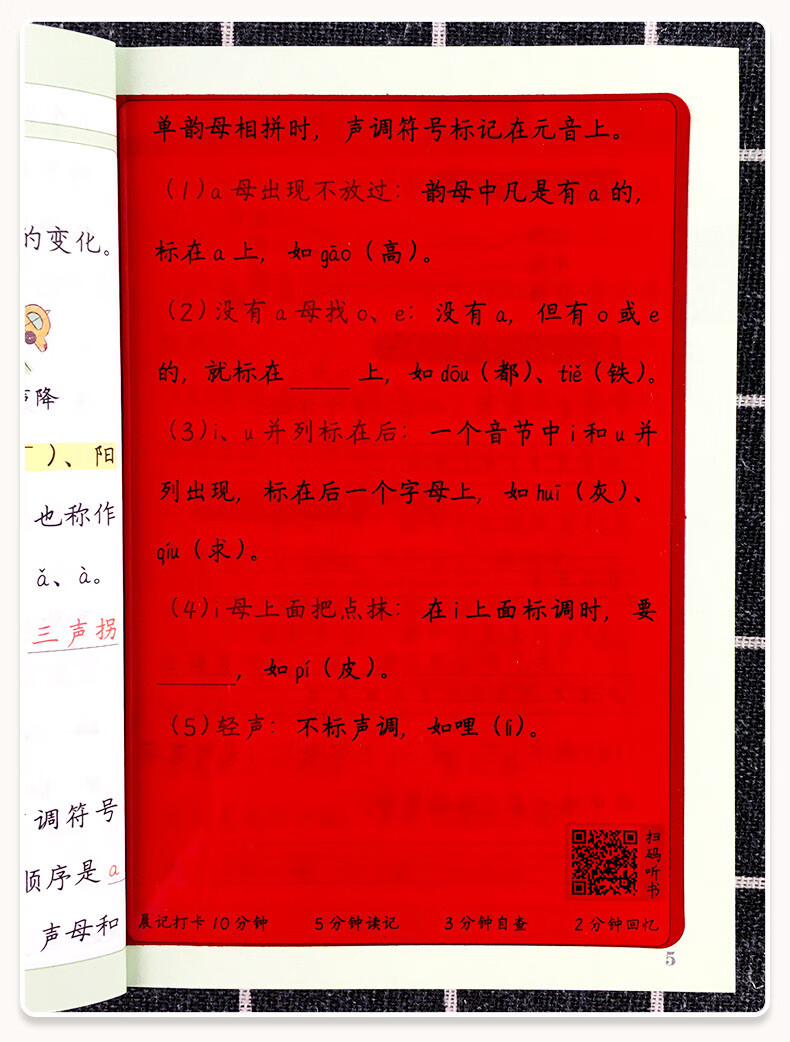 的变化。
声降
)、阳
也称作
ǎ、à。
三声拐
调符号
顺序是a
声母和
单韵母相拼时，声调符号标记在元音上。
（1）a母出现不放过：韵母中凡是有a的，
标在a上，如gāo（高）。
（2）没有a母找o、e：没有a，但有o或e
的，就标在____上，如dōu（都）、tiě（铁）。
（3）i、u并列标在后：一个音节中i和u并
列出现，标在后一个字母上，如huī（灰）、
qíu（求）。
（4）i母上面把点抹：在i上面标调时，要
____，如pí（皮）。
（5）轻声：不标声调，如哩（li）。
扫码听书
晨记打卡10分钟 5分钟读记 3分钟自查 2分钟回忆
5